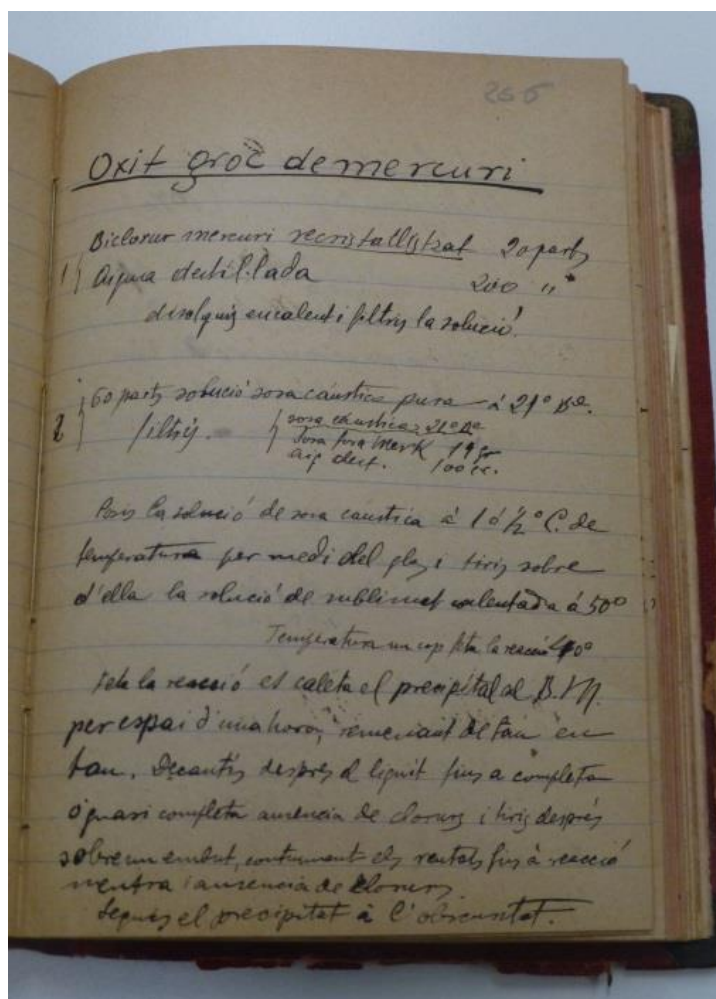 265
Oxit groc de mercuri
Biclorur mercuri recristallitzat 20 parts
1 Aigua destil.lada 200 "
disolguis encalent i filtris la solució.
2 60 parts solució sosa cáustica pura á 21º Be.
filtris. sosa cáustica 21º Be
Sosa pura Merk 14 gr
aig dest. 100 cc.
Posis la solució de sosa cáustica á 1 ó ½º C. de
temperatura per medi del glas i tiris sobre
d'ella la solució de sublimat calentada á 50º
Temperatura un cop feta la reacció 40º
feta la reacció es calenta el precipitat al B.M.
per espai d'una hora, remenant de tan en
tan. Decantis després el liquit fins a completa
o quasi completa ausencia de clorurs i tiris després
sobre un embut, continuant els rentats fins á reacció
neutra i ausencia de clorurs
Sequis el precipitat á l'obscuritat.